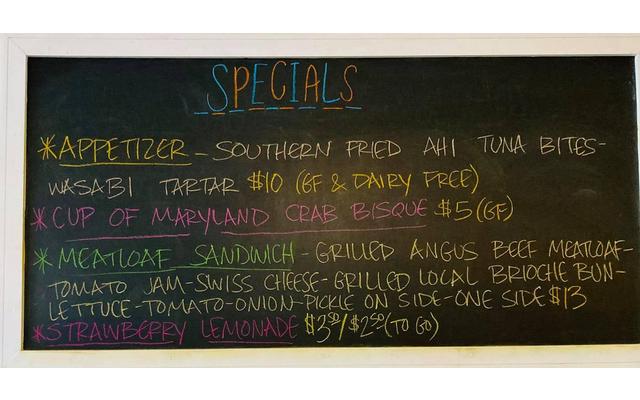 SPECIALS
*APPETIZER - SOUTHERN FRIED AHI TUNA BITES-
WASABI TARTAR $10 (GF & DAIRY FREE)
*CUP OF MARYLAND CRAB BISQUE $5 (GF)
*MEATLOAF SANDWICH - GRILLED ANGUS BEEF MEATLOAF-
TOMATO JAM-SWISS CHEESE-GRILLED LOCAL BRIOCHE BUN-
LETTUCE-TOMATO-ONION-PICKLE ON SIDE-ONE SIDE $13
*STRAWBERRY LEMONADE $3.50/$2.50 (TO GO)